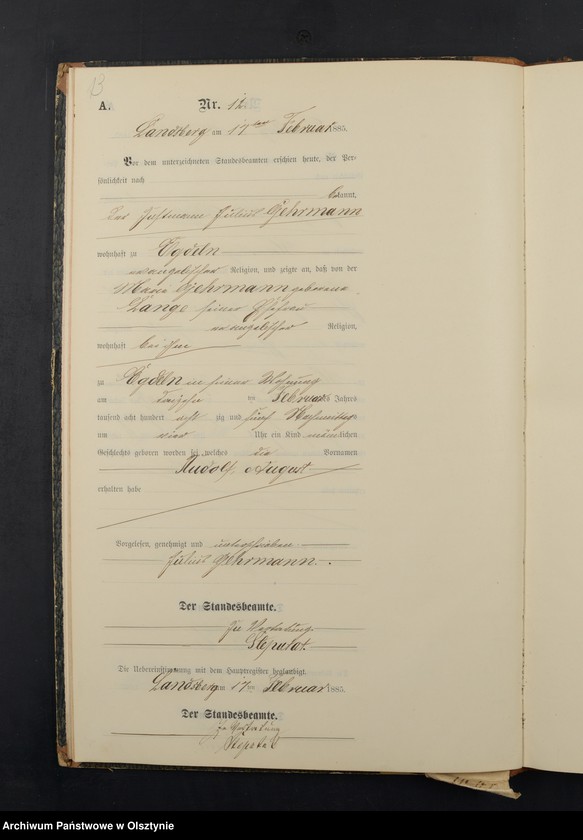 13
A.
Nr. 12.
Landsberg am 17ten Februar 1885.
Vor dem unterzeichneten Standesbeamten erschien heute, der Per-
sönlichkeit nach
kannt,
der Julius Gehrmann
wohnhaft zu
evangelischer Religion, und zeigte an, daß von der
Maria Gehrmann geborene
Lange seiner Ehefrau
evangelischer Religion,
wohnhaft bei ihm
zu in seiner Wohnung
am ten Februar des Jahres
tausend acht hundert acht zig und fünf Nachmittags
um vier Uhr ein Kind männlichen
Geschlechts geboren worden sei, welches die Vornamen
Rudolf August
erhalten habe
Vorgelesen, genehmigt und unterschrieben
Julius Gehrmann.
Der Standesbeamte.
In Vertretung.
Steputat.
Die Uebereinstimmung mit dem Hauptregister beglaubigt.
Landsberg am 17ten Februar 1885.
Der Standesbeamte.
In Vertretung
Steputat
Archiwum Państwowe w Olsztynie